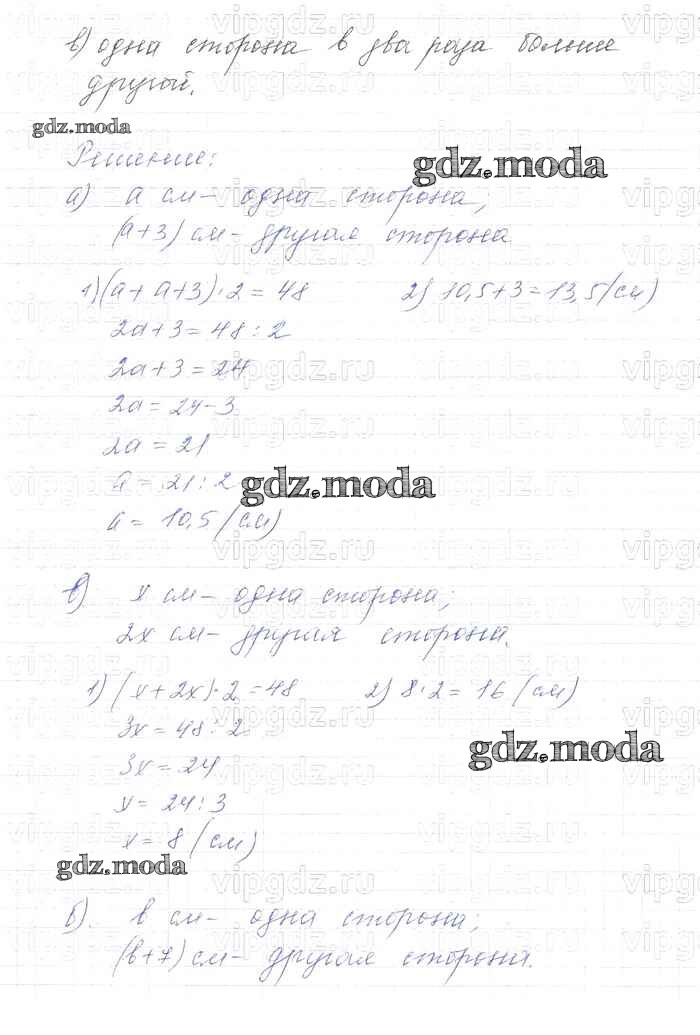 в) одна сторона в два раза больше
другой.
gdz.moda
Решение:
gdz.moda
а) a см – одна сторона,
(a+3) см – другая сторона
1) (a + a+3)·2 = 48
2) 10,5+3 = 13,5 (см)
2a+3 = 48 : 2
2a+3 = 24
2a = 24-3
2a = 21
a = 21 : 2
gdz.moda
a = 10,5 (см)
в) x см – одна сторона;
2x см – другая сторона.
1) (x + 2x)·2 = 48
2) 8·2 = 16 (см)
3x = 48 : 2
gdz.moda
3x = 24
x = 24 : 3
x = 8 (см)
gdz.moda
б). в см – одна сторона;
(в+7) см – другая сторона.
vipgdz.ru